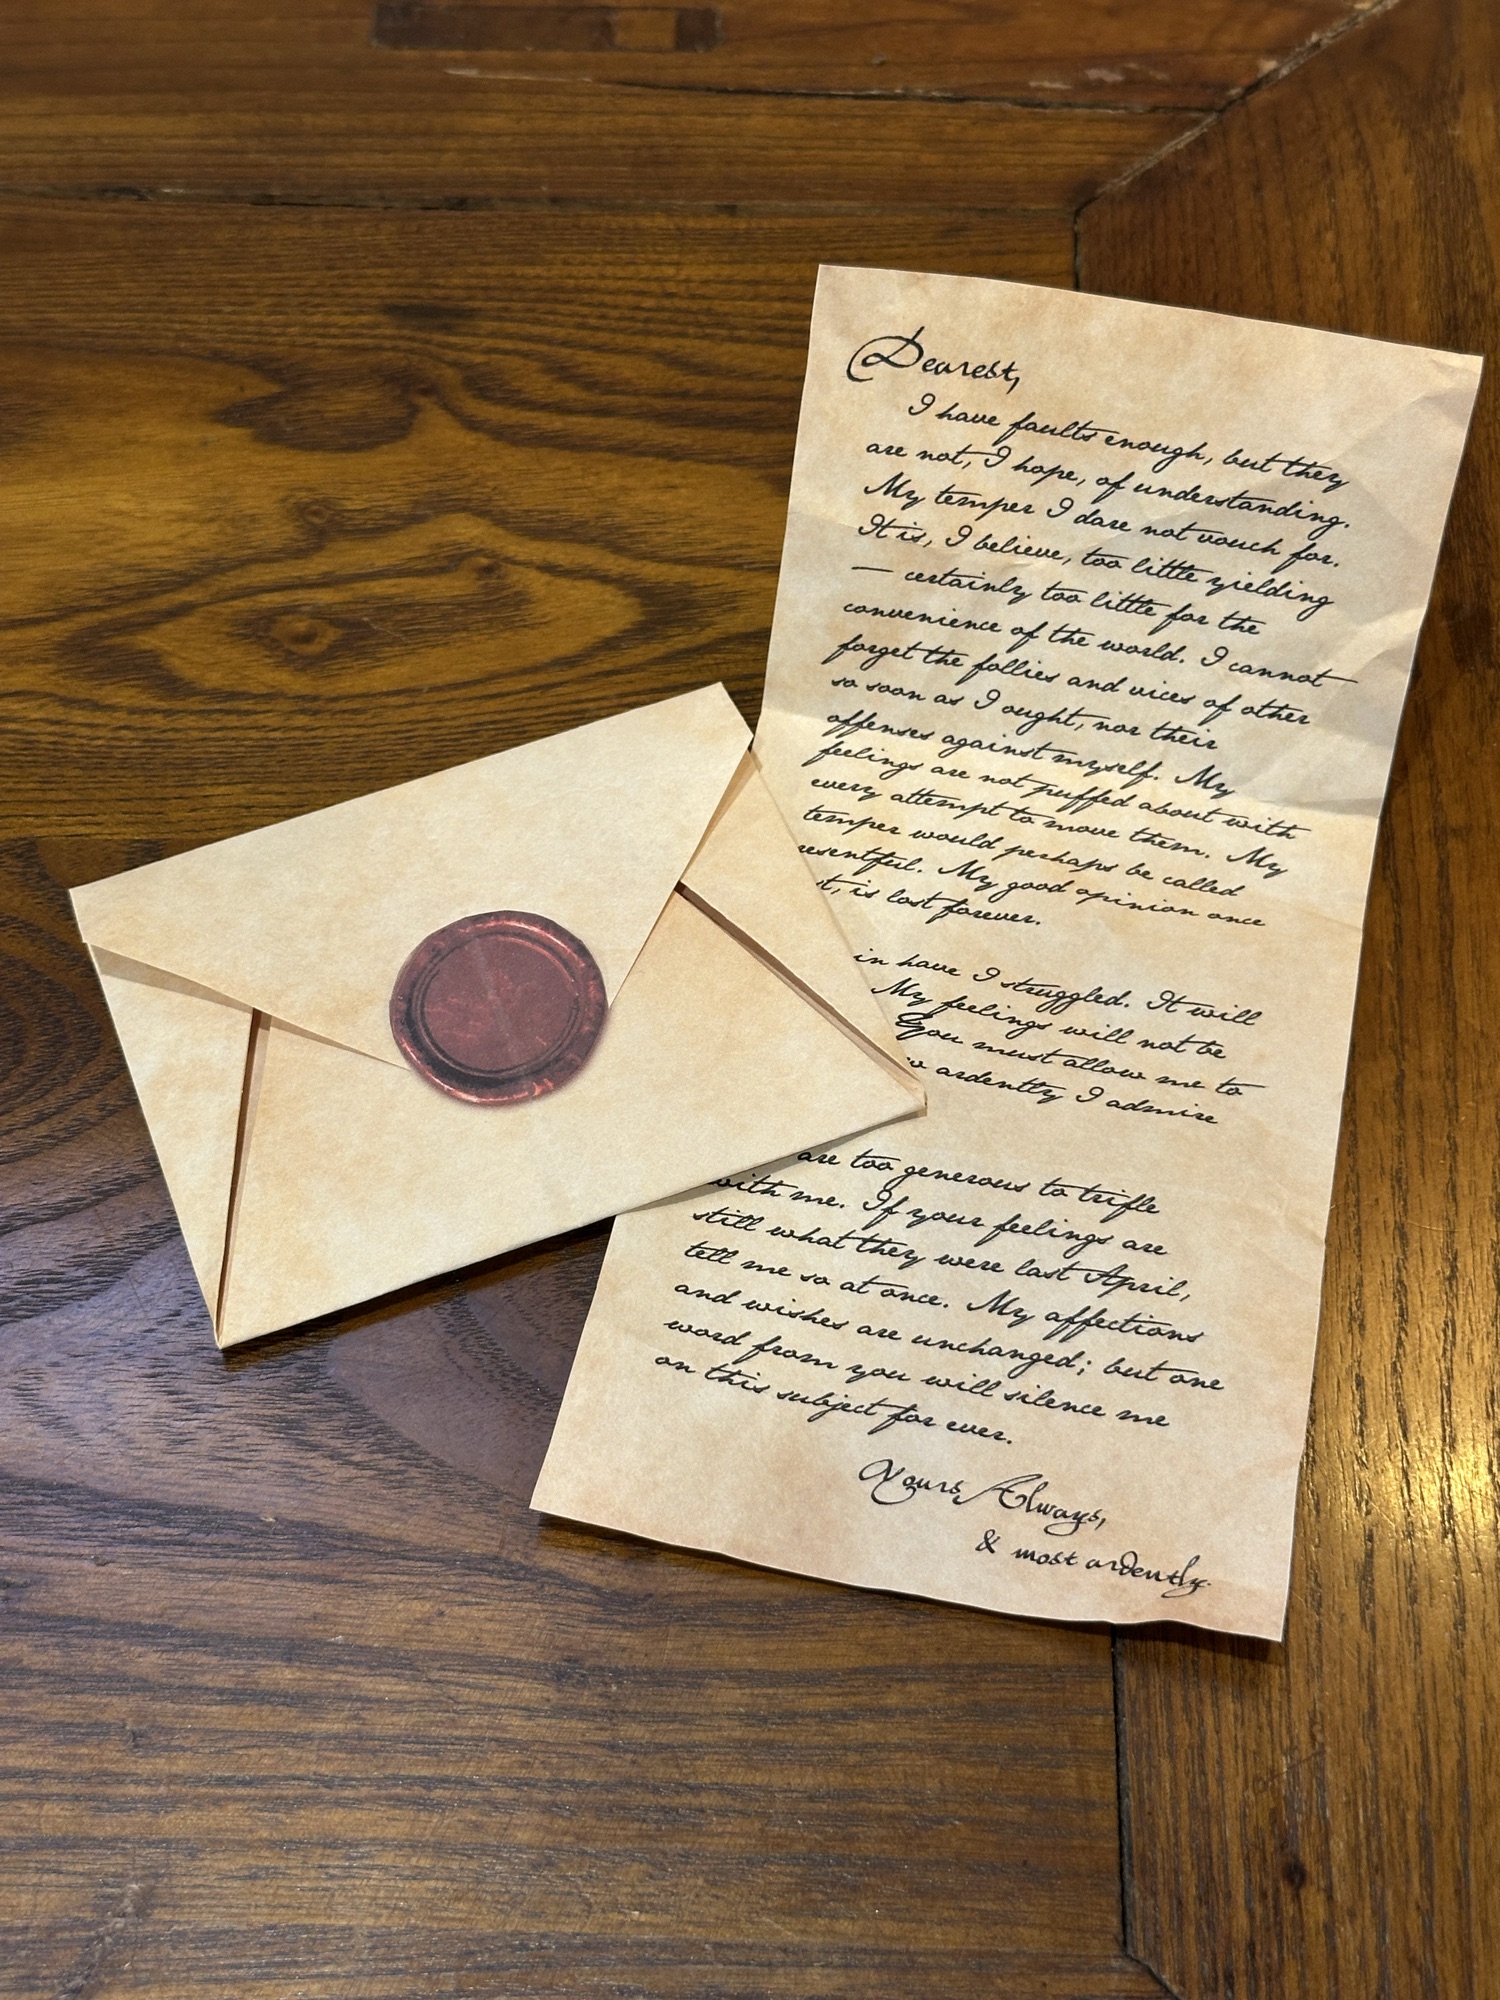 Dearest,
I have faults enough, but they
are not, I hope, of understanding.
My temper I dare not vouch for.
It is, I believe, too little yielding
— certainly too little for the
convenience of the world. I cannot
forget the follies and vices of other
so soon as I ought, nor their
offenses against myself. My
feelings are not puffed about with
every attempt to move them. My
temper would perhaps be called
resentful. My good opinion once
t, is lost forever.
in have I struggled. It will
My feelings will not be
You must allow me to
ardently I admire
are too generous to trifle
with me. If your feelings are
still what they were last April,
tell me so at once. My affections
and wishes are unchanged; but one
word from you will silence me
on this subject for ever.
Yours Always,
& most ardently.